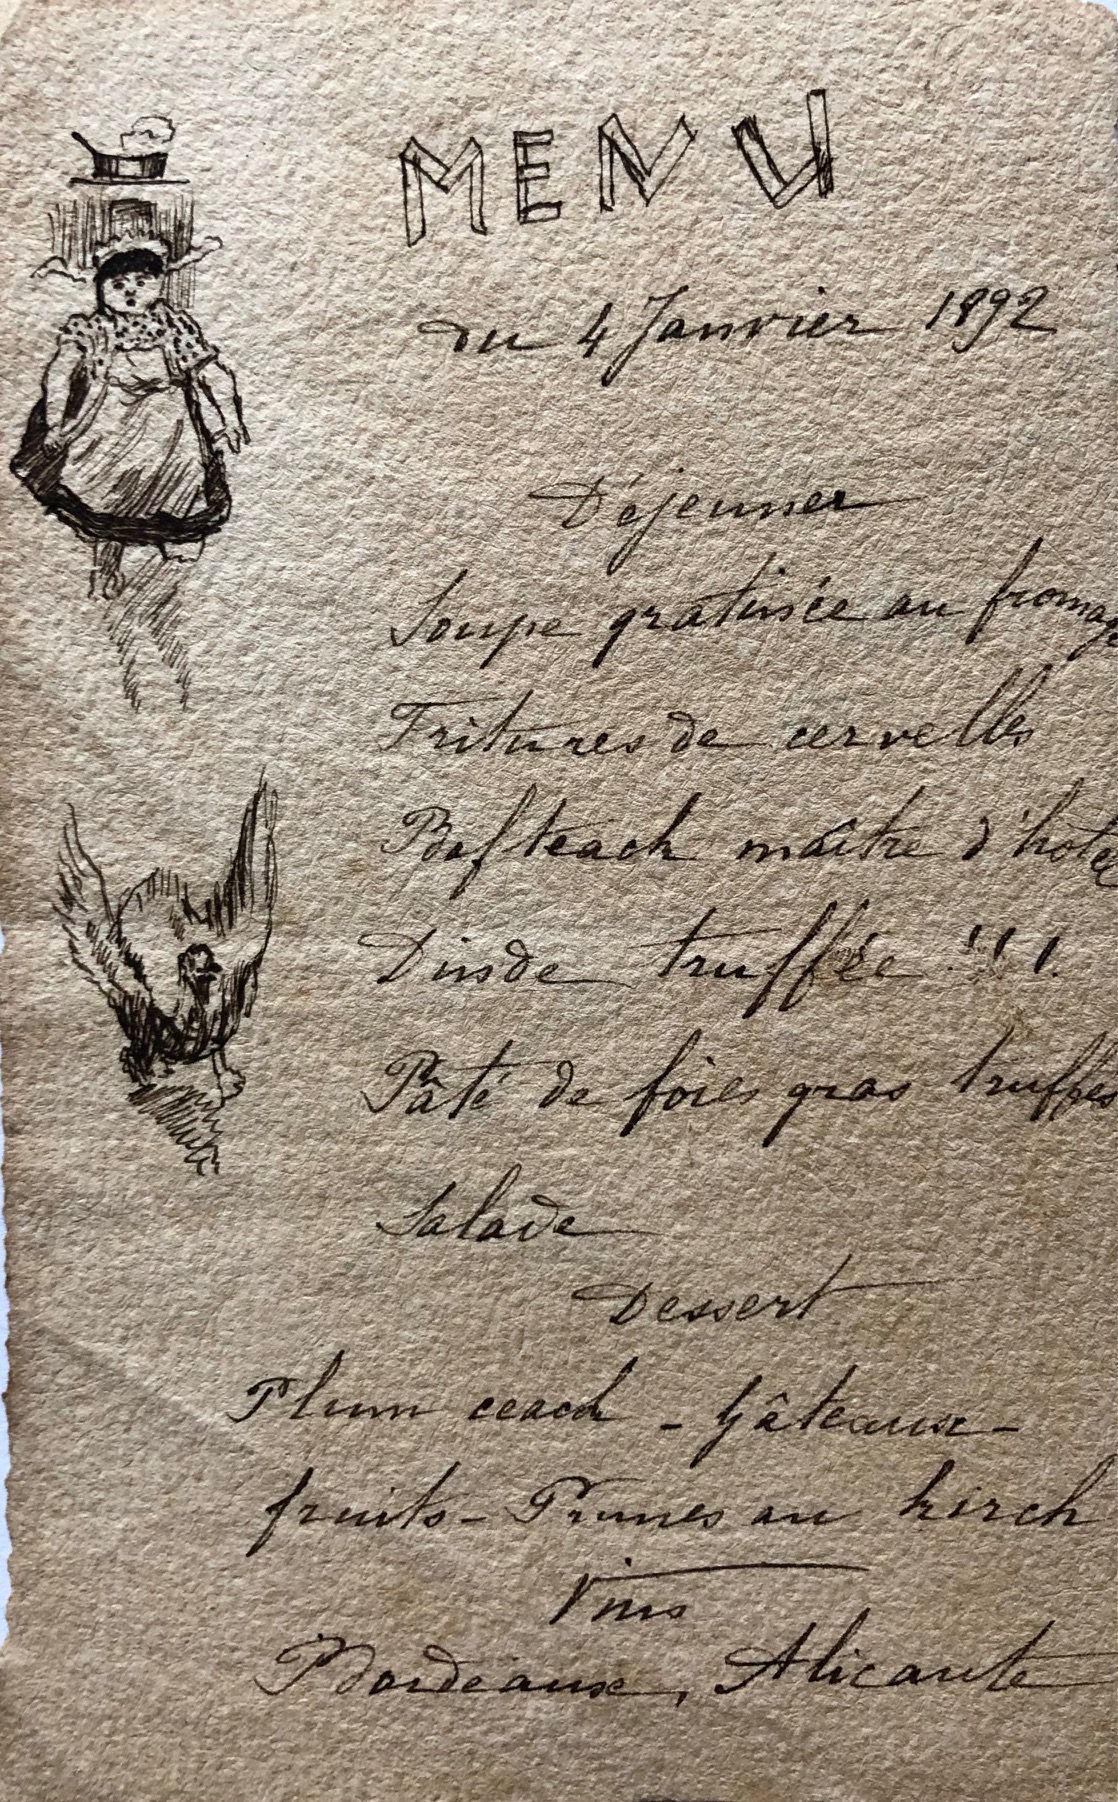 MENU
du 4 Janvier 1892
Déjeuner
Soupe gratinée au fromage
Fritures de cervelles
Bofteack maître d'hotel
Dinde truffée !!!
Pâté de foies gras truffés
Salade
Dessert
Plum ceack - Gâteaux -
fruits - Prunes au kirch
Vins
Bordeaux, Alicante